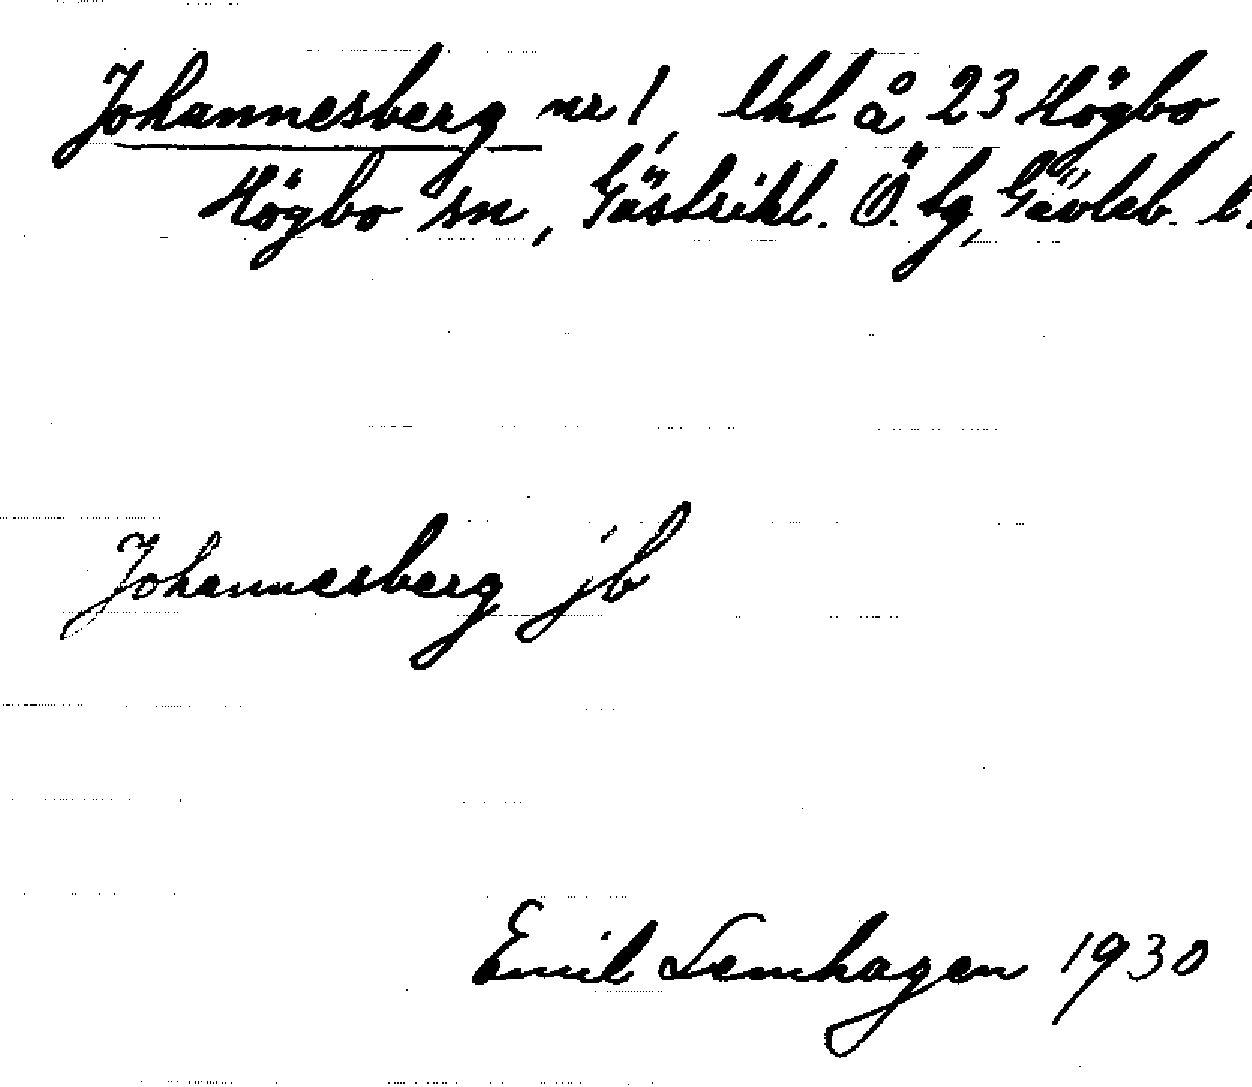 Johannesberg nr 1, lht å 23 Högbo
Högbo sn, Gästrikl. Ö. tg, Gävleb. l.
Johannesberg jb
Emil Lemhagen 1930